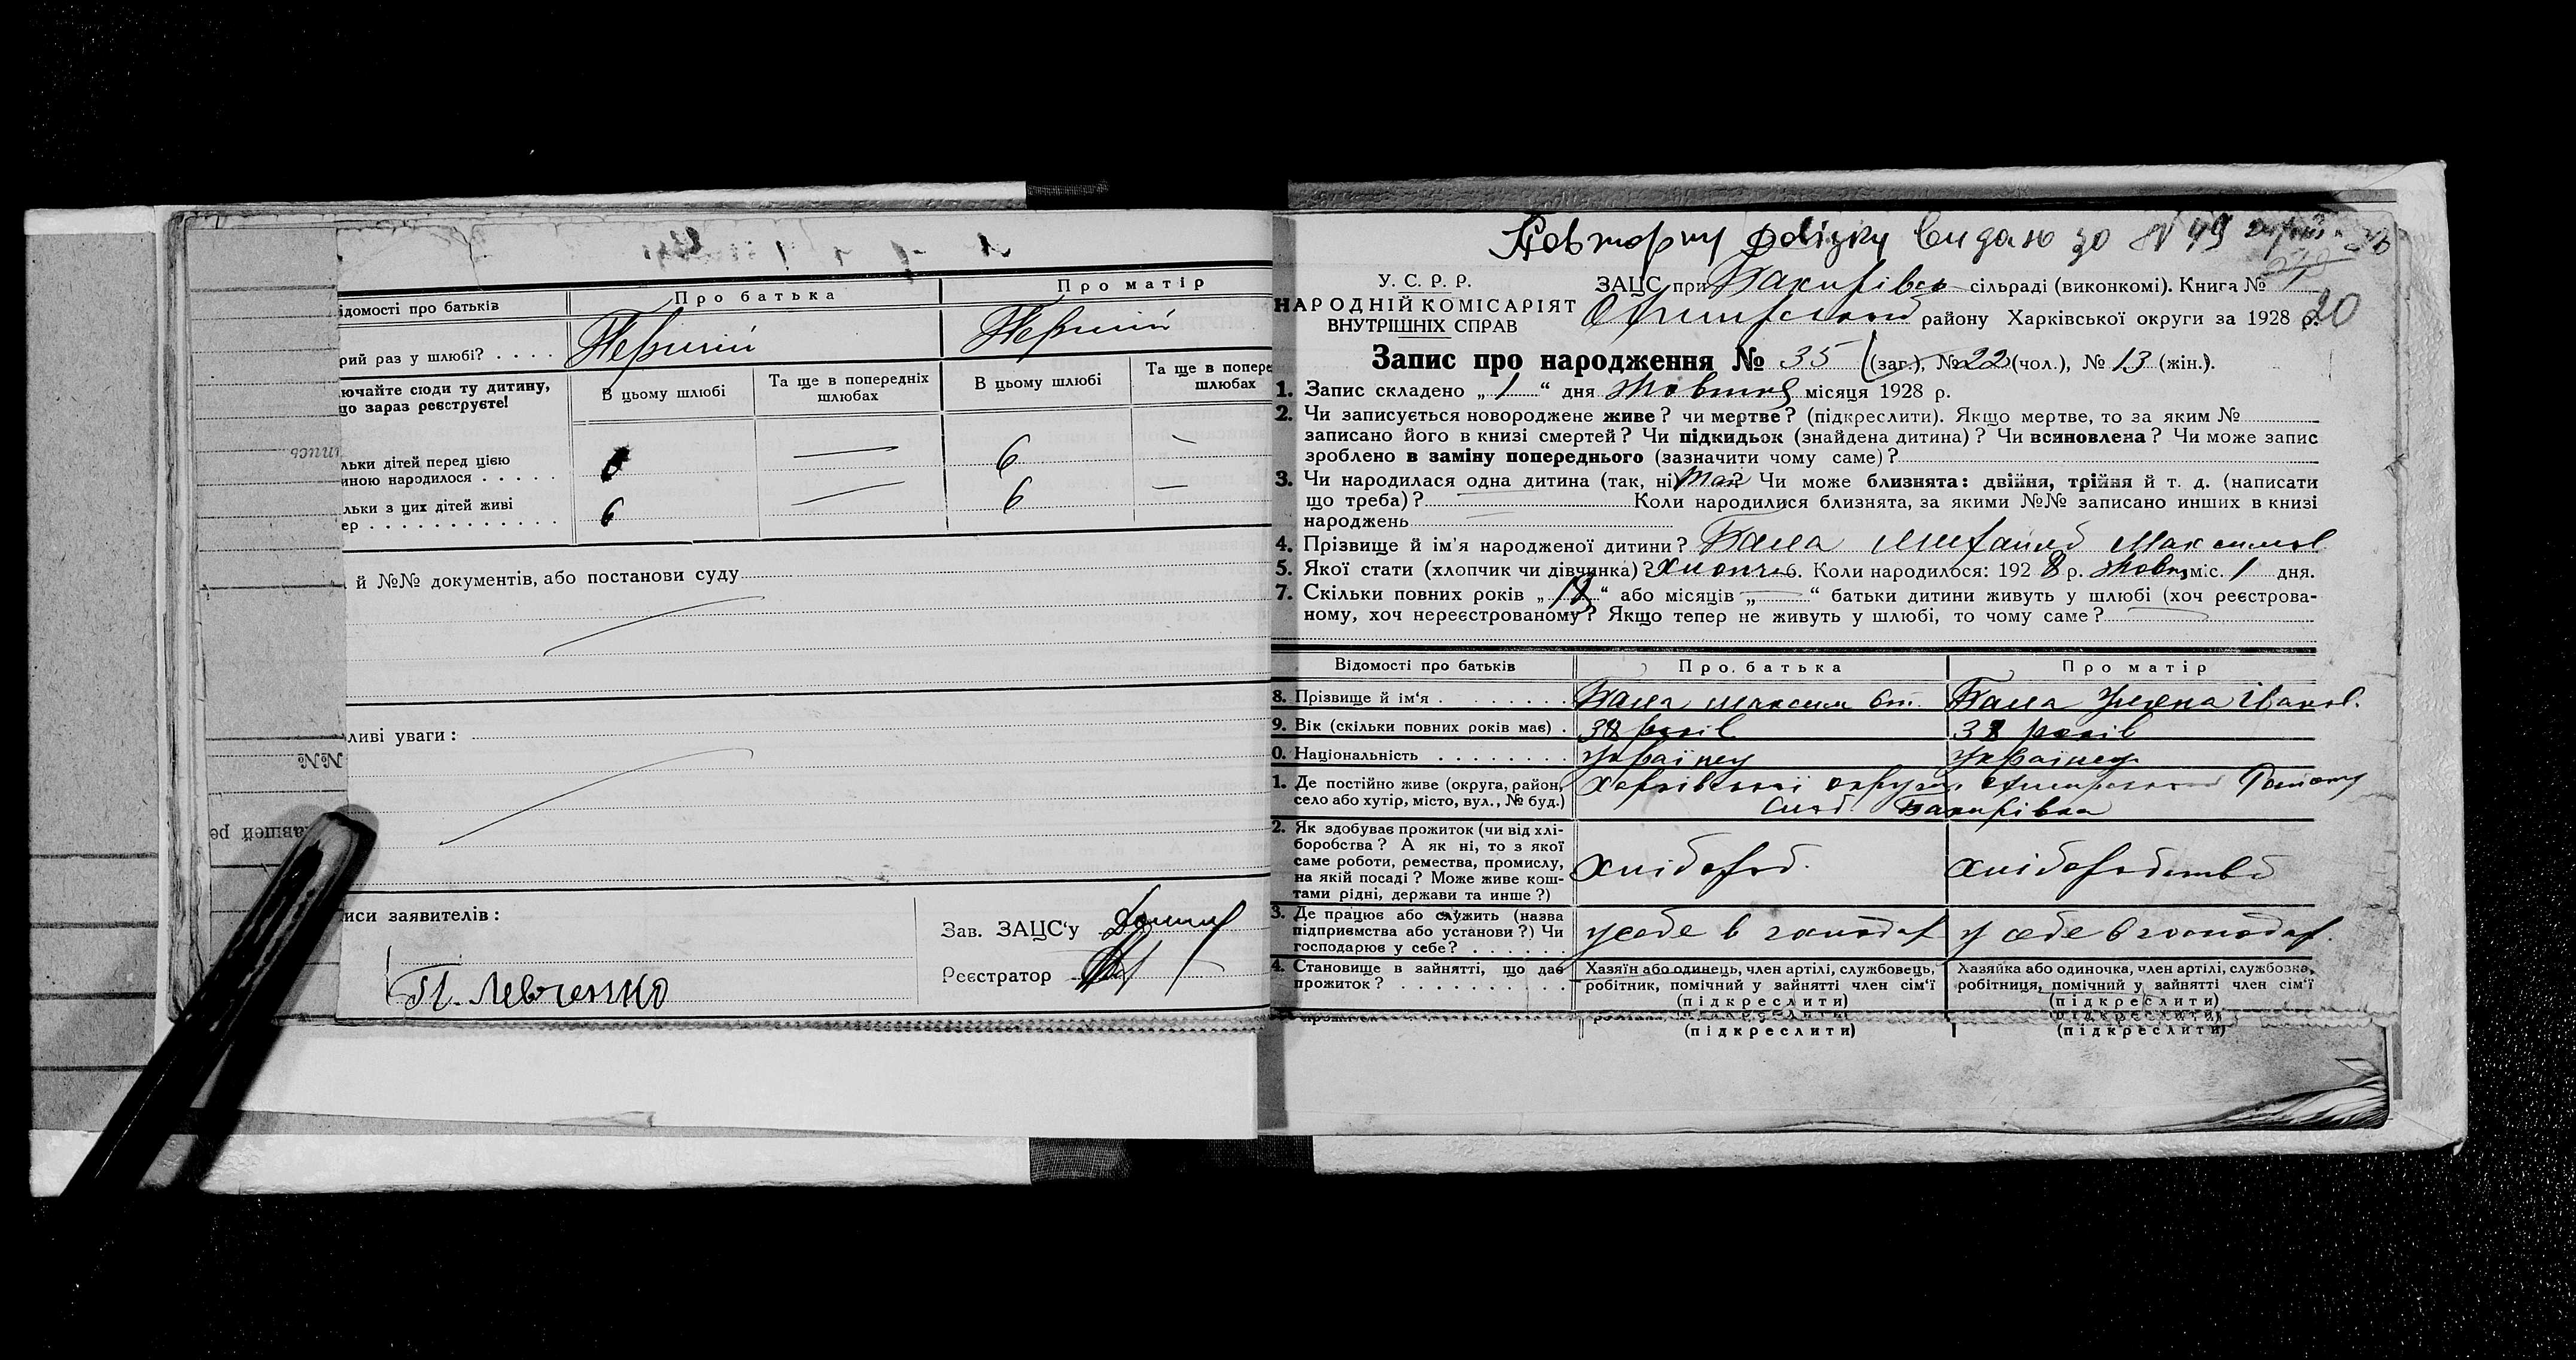 ідомості про батьків
Про батька
Про матір
рий раз у шлюбі? . . . .
Перший
Перший
ючайте сюди ту дитину,
що зараз реєструєте!
В цьому шлюбі
Та ще в попередніх
шлюбах
В цьому шлюбі
Та ще в попере
шлюбах
льки дітей перед цією
иною народилося . . . . .
6
—
6
—
льки з цих дітей живі
ер . . . . . . . . . . . .
6
—
6
—
й №№ документів, або постанови суду
ливі уваги:
иси заявителів:
Зав. ЗАЦС‘у
Реєстратор
П. Левченко
Повторну видано за № 49
У. С. Р. Р.
НАРОДНІЙ КОМІСАРІЯТ
ВНУТРІШНІХ СПРАВ
ЗАЦС при Бакирівсь сільраді (виконкомі). Книга № 1
району Харківської округи за 1928 р.
20
Запис про народження № 35 (заг.), № 22 (чол.), № 13 (жін.).
1. Запис складено „ 1 “ дня Жовтня місяця 1928 р.
2. Чи записується новороджене живе? чи мертве? (підкреслити). Якщо мертве, то за яким №
записано його в книзі смертей? Чи підкидьок (знайдена дитина)? Чи всиновлена? Чи може запис
зроблено в заміну попереднього (зазначити чому саме)?
3. Чи народилася одна дитина (так, ні) так Чи може близнята: двійня, трійня й т. д. (написати
що треба)? Коли народилися близнята, за якими №№ записано инших в книзі
народжень
4. Прізвище й ім’я народженої дитини? Михайло Максимов
5. Якої стати (хлопчик чи дівчинка)? Хлопчик. Коли народилося: 1928 р. Жовт, міс. 1 дня.
7. Скільки повних років „ “ або місяців „ — “ батьки дитини живуть у шлюбі (хоч реєстрова-
ному, хоч нереєстрованому? Якщо тепер не живуть у шлюбі, то чому саме?
Відомості про батьків
Про батька
Про матір
8. Прізвище й ім‘я . . . . . . . .
Максим
Уляна Іванов.
9. Вік (скільки повних років має) .
38 років
38 років
0. Національність . . . . . . . .
Українец
Українец
1. Де постійно живе (округа, район,
село або хутір, місто, вул., № буд.)
Харківської округи Охтирського Району
Слоб. Бакирівка
2. Як здобуває прожиток (чи від хлі-
боробства? А як ні, то з якої
саме роботи, ремества, промислу,
на якій посаді? Може живе кош-
тами рідні, держави та инше?)
Хлібороб.
Хліборобство
3. Де працює або служить (назва
підприємства або установи?) Чи
господарює у себе? . . . . . .
у себе в господар
у себе в господар.
4. Становище в зайнятті, що дає
прожиток? . . . . . . . . . .
Хазяїн або одинець, член артілі, службовець,
робітник, помічний у зайнятті член сім‘ї
(підкреслити)
Хазяйка або одиночка, член артілі, службовка,
робітниця, помічний у зайнятті член сім‘ї
(підкреслити)
(підкреслити)
(підкреслити)